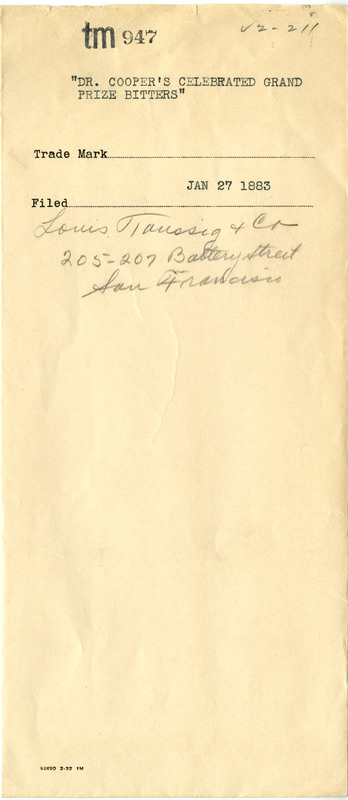 tm 947
V2-211
"DR. COOPER'S CELEBRATED GRAND
PRIZE BITTERS"
Trade Mark
JAN 27 1883
Filed
Louis Taussig & Co
205-207 Battery Street
San Francisco